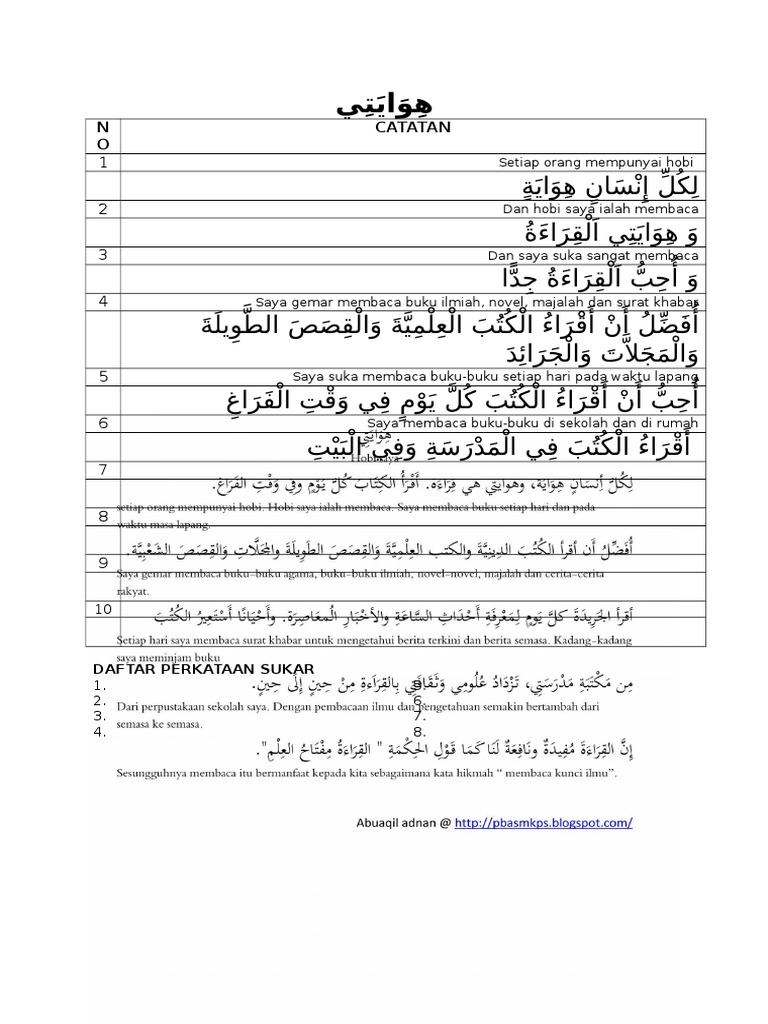 هِوَايَتِي
NO
CATATAN
1
Setiap orang mempunyai hobi
لِكُلِّ إِنْسَانٍ هِوَايَةٍ
2
Dan hobi saya ialah membaca
وَ هِوَايَتِي اَلْقِرَاءَةُ
3
Dan saya suka sangat membaca
وَ أُحِبُّ اَلْقِرَاءَةُ جِدًّا
4
Saya gemar membaca buku ilmiah, novel, majalah dan surat khabar
أُفَضِّلُ أَنْ أَقْرَاءُ الْكُتُبَ الْعِلْمِيَّةَ وَالْقِصَصَ الطَّوِيلَةَ
وَالْمَجَلاَّتَ وَالْجَرَائِدَ
5
Saya suka membaca buku-buku setiap hari pada waktu lapang
أُحِبُّ أَنْ أَقْرَاءُ الْكُتُبَ كُلَّ يَوْمٍ فِي وَقْتِ الْفَرَاغِ
6
Saya membaca buku-buku di sekolah dan di rumah
هِوَايَتِي
أَقْرَاءُ الْكُتُبَ فِي الْمَدْرَسَةِ وَفِي الْبَيْتِ
Hobi saya
7
لِكُلِّ إِنسَانٍ هِوَايَة، وهوايتي هي قِرَاءَه. أَقْرَأُ الكِتَابَ كُلَّ يَوْمٍ وفِي وَقْتِ الفَرَاغ.
setiap orang mempunyai hobi. Hobi saya ialah membaca. Saya membaca buku setiap hari dan pada
8
waktu masa lapang.
أُفَضِّلُ أَن أقرأ الكُتُبَ الدِينِيَّةَ والكتب العِلْمِيَّةَ وَالقِصَصَ الطَوِيلَةَ والمَجَلَّاتِ وَالقِصَصَ الشَعْبِيَّة.
9
Saya gemar membaca buku-buku agama, buku-buku ilmiah, novel-novel, majalah dan cerita-cerita
rakyat.
10
أقرأ الجَرِيدَةَ كلَّ يَومٍ لِمَعْرِفَةِ أَحْدَاثِ السَّاعَةِ والأخْبَارِ الُمعَاصِرَة. وأَحْيَانًا أَسْتَعِيرُ الكُتُبَ
Setiap hari saya membaca surat khabar untuk mengetahui berita terkini dan berita semasa. Kadang-kadang
saya meminjam buku
DAFTAR PERKATAAN SUKAR
مِن مَكْتَبَةِ مَدْرَسَتِي، تَزْدَادُ عُلُومِي وَثَقَافَتِي بِالقِرَاءةِ مِنْ حِينٍ إِلَى حِينٍ.
1.
5.
2.
6.
Dari perpustakaan sekolah saya. Dengan pembacaan ilmu dan pengetahuan semakin bertambah dari
3.
7.
semasa ke semasa.
4.
8.
إِنَّ القِرَاءَةَ مُفِيدَةٌ ونَافِعَةٌ لَنَا كَمَا قَوْلِ الحِكْمَةِ " القِرَاءَةُ مِفْتَاحُ العِلْمِ".
Sesungguhnya membaca itu bermanfaat kepada kita sebagaimana kata hikmah “ membaca kunci ilmu”.
Abuaqil adnan @ http://pbasmkps.blogspot.com/